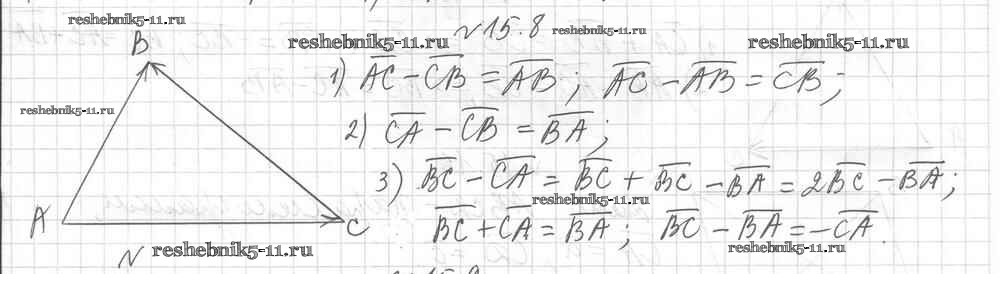 reshebnik5-11.ru
№15.8 reshebnik5-11.ru
B reshebnik5-11.ru reshebnik5-11.ru
1) A͞C − C͞B = A͞B; A͞C − A͞B = C͞B;
reshebnik5-11.ru
2) C͞A − C͞B = B͞A;
3) B͞C − C͞A = B͞C + B͞C − B͞A = 2B͞C − B͞A;
reshebnik5-11.ru
A C B͞C + C͞A = B͞A; B͞C − B͞A = −C͞A.
N reshebnik5-11.ru reshebnik5-11.ru